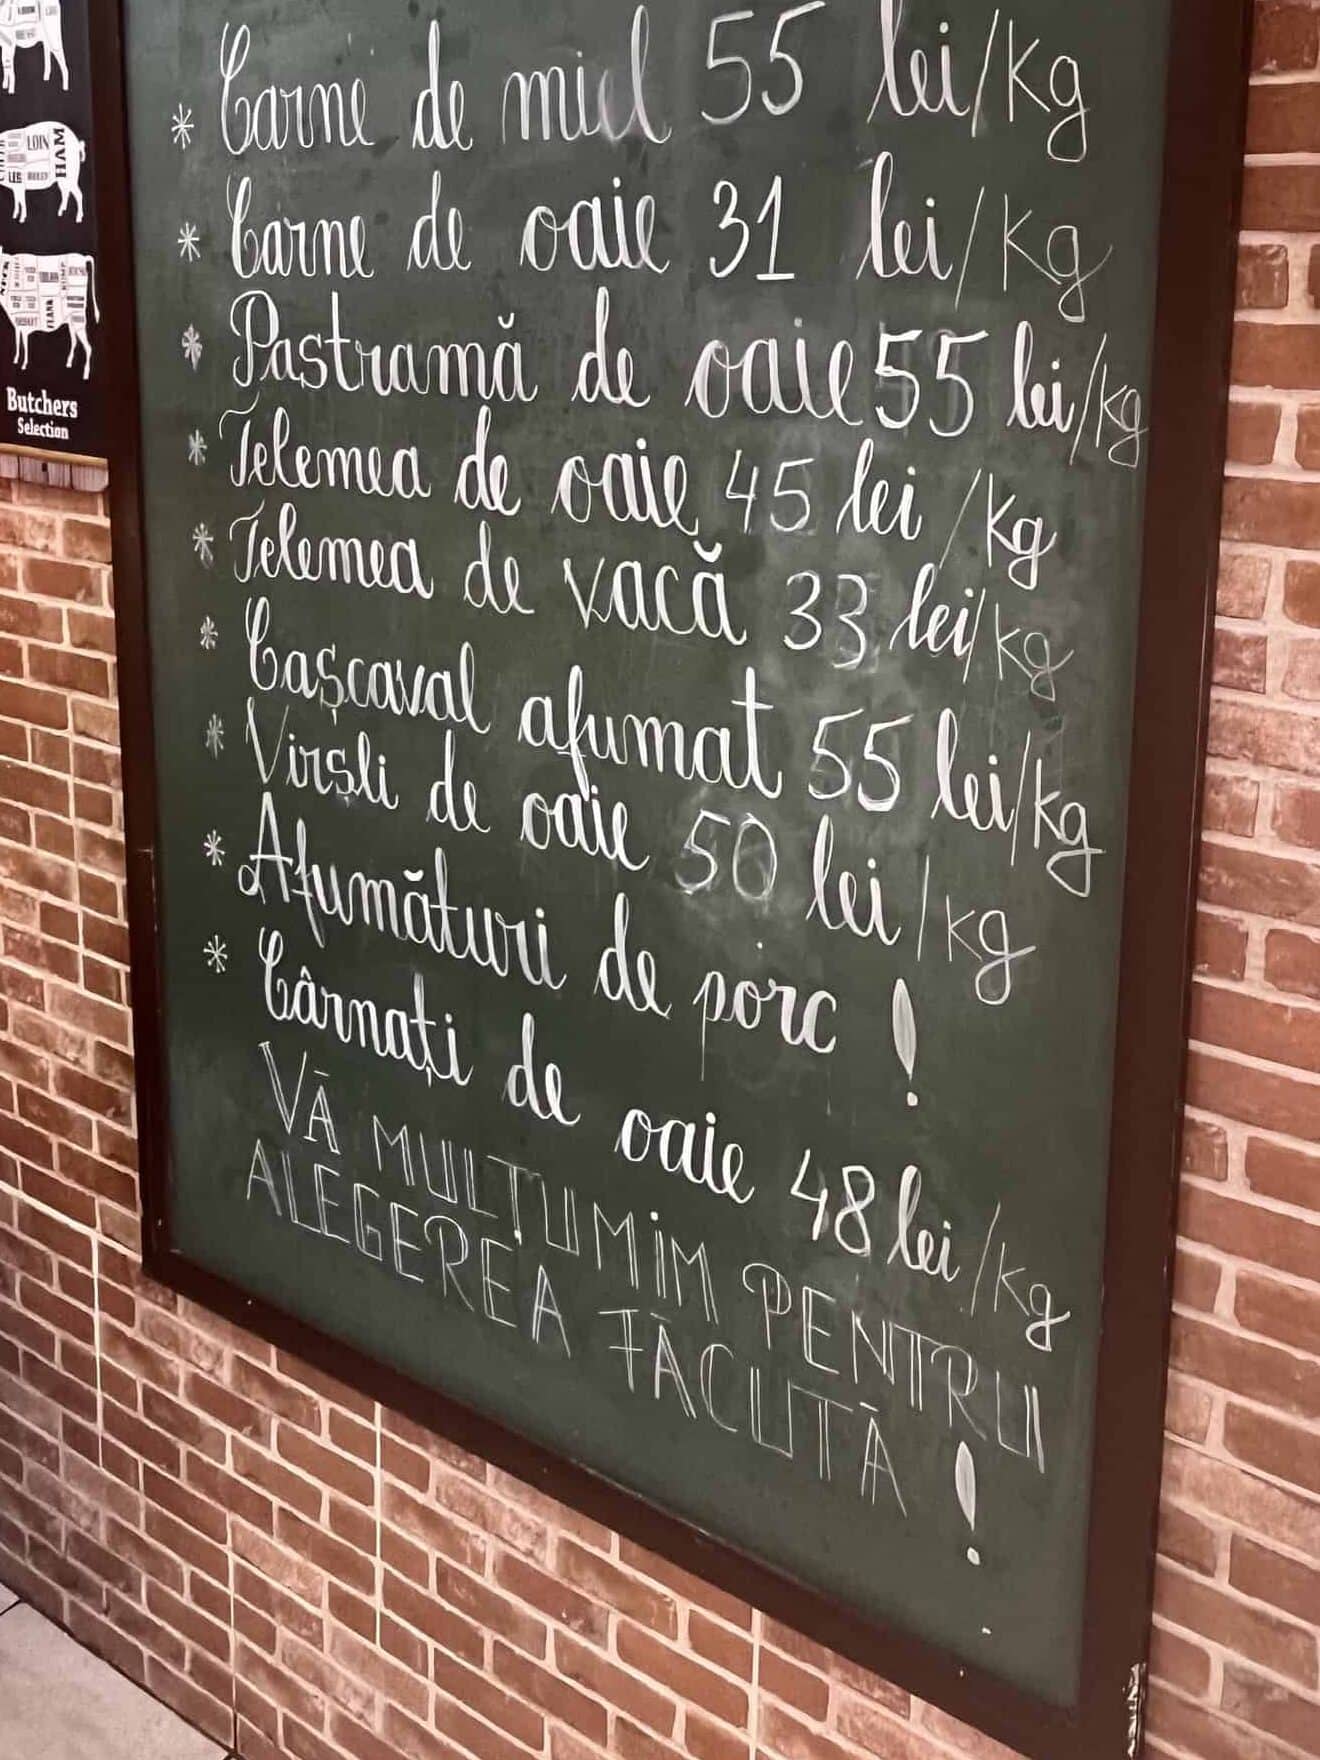 * Carne de miel 55 lei/kg
* Carne de oaie 31 lei/kg
* Pastramă de oaie 55 lei/kg
* Telemea de oaie 45 lei/kg
* Telemea de vacă 33 lei/kg
* Cașcaval afumat 55 lei/kg
* Virșli de oaie 50 lei/kg
* Afumături de porc!
* Cârnați de oaie 48 lei/kg
VĂ MULȚUMIM PENTRU
ALEGEREA FĂCUTĂ!
LOIN
HAM
Butchers
Selection